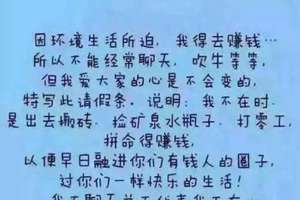 因环境生活所迫，我得去赚钱…
所以不能经常聊天，吹牛等等，
但我爱大家的心是不会变的，
特写此请假条。说明：我不在时.
是出去搬砖、捡矿泉水瓶子、打零工,
拼命得赚钱,
以便早日融进你们有钱人的圈子，
过你们一样快乐的生活！